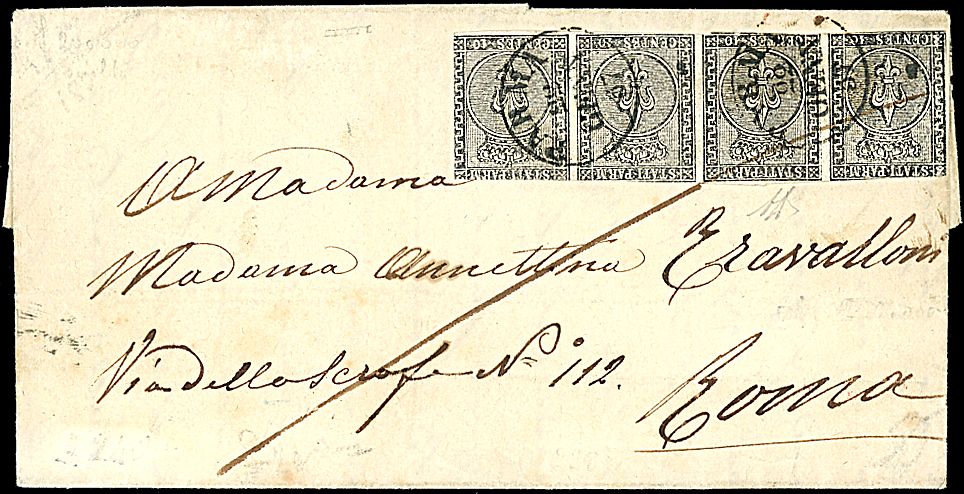 CENTES. 10 CENTES. 10 CENTES. 10 CENTES. 10
PARMA PARMA
STATI PARM STATI PARM STATI PARM STATI PARM
A Madama
Madama Annettina
Via della Scrofa N° 112.
Roma